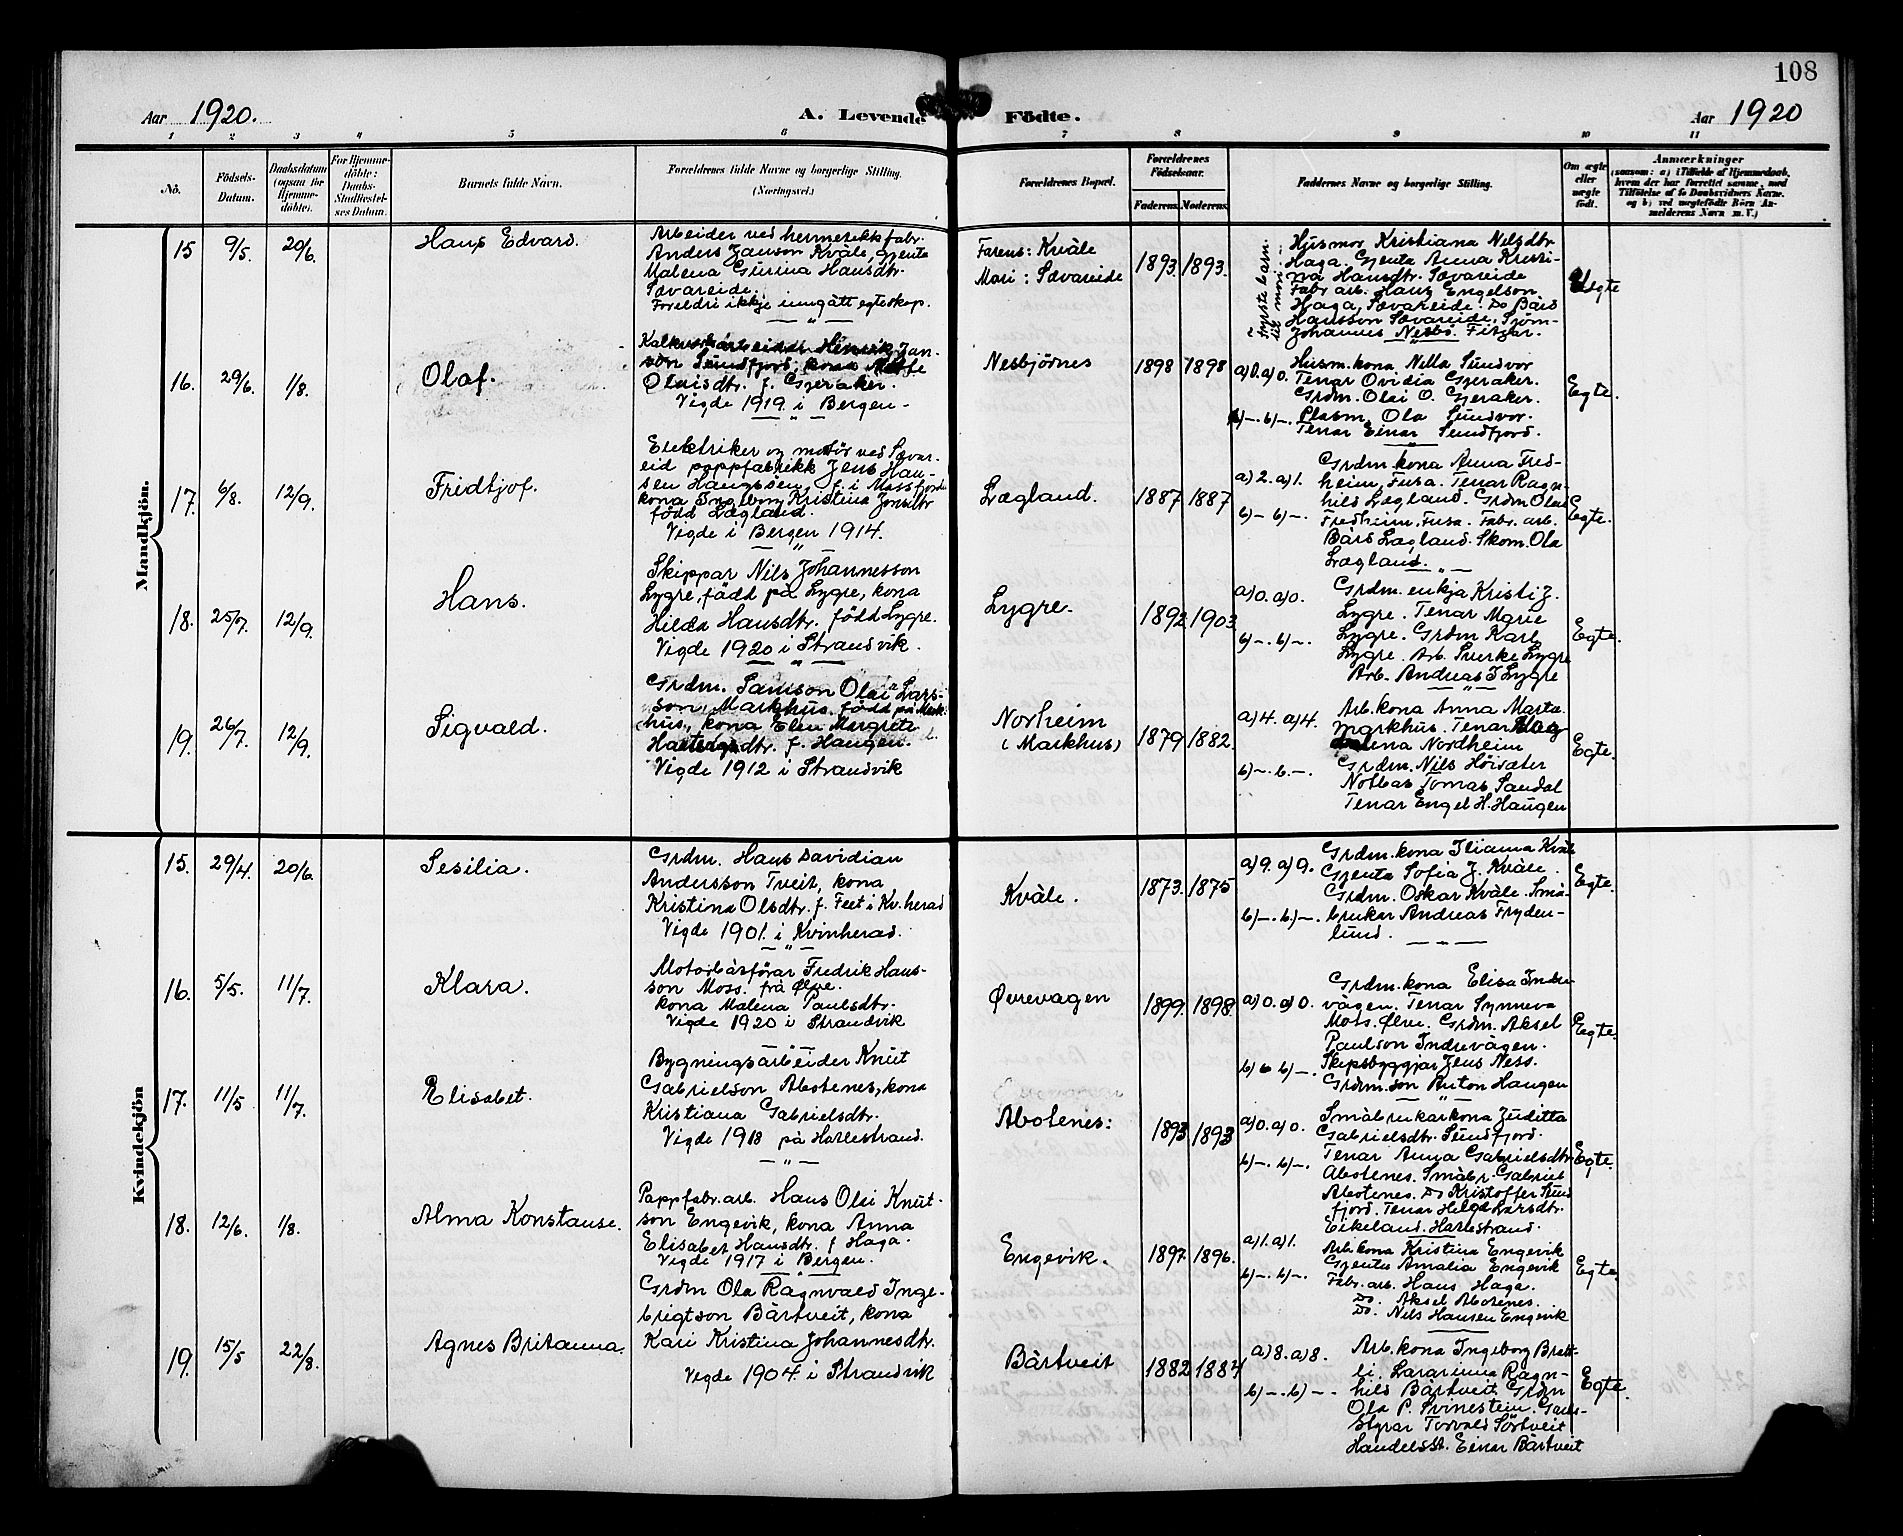 108
Aar 1920.
A. Levende Födte.
Aar 1920
1 2 3 4 5 6 7 8 9 10 11
No.
Födsels-Datum.
Daabsdatum (ogsaa for Hjemme-döbte).
For Hjemme-döbte: Daabs-Stadfæstel-ses Datum.
Barnets fulde Navn.
Forældrenes fulde Navne og borgerlige Stilling.
(Næringsvei.)
Forældrenes Bopæl.
Forældrenes Födselsaar.
Faderens. Moderens.
Faddernes Navne og borgerlige Stilling.
Om ægte eller uægte født.
Anmærkninger
(saasom: a) i Tilfælde af Hjemmedaab, hvem der har forrettet samme, med Tilföielse af 2 Daabsvidners Navne, og b) ved uægtefödte Börn An-melderens Navn m. V.)
Mandkjön.
15 9/5. 20/6. Hans Edvard.
Arbeider ved hermetikkfabr.
Anders Janson Kvåle, gjenta
Malena Gurina Hansdtr.
Sævareide.
Foreldri ikkje inngått egteskap.
Farens: Kvåle
Mori: Sævareide
1893. 1893.
Fyrste barn
til mori
Husmor Kristiana Nilsdtr
Haga. Gjenta Anna Kristi-
na Hansdtr. Sævareide
Fabr arb. Hans Engelson
Haga, Sævareide. Do Bård
Hansson Sævareide. Sjöm-
Johannes Nesbö. Fitjar.
Uegte
16. 29/6. 1/8. Olaf.
Kalkverksarbeidar Henrik Jan-
son Sundfjord, kona
Olaisdtr. f. Gjeraker.
Vigde 1919 i Bergen-
Nesbjörnes
1898 1898
a)0. a)0.
b)-. b)-.
Husm.kona Nilla Sundvor
Tenar Ovidia Gjeraker.
Grdm. Olai O. Gjeraker.
Plasm. Ola Sundvor.
Tenar Einar Sundfjord.
Egte.
17. 6/8. 12/9. Fridtjof.
Elektriker og motör ved Sævar-
eid pappfabrikk Jens Han-
sen Haugssen, f. i Masfjorde
kona Ingeborg Kristina Jonsdtr
född Lægland.
Vigde i Bergen 1914.
Lægland.
1887 1887
a)2. a)1.
b)-. b)-.
Grdm.kona Anna Fred-
heim, Fusa. Tenar Ragn-
hild Lægland. Grdm Olai
Fredheim, Fusa. Fabr. arb.
Bård Lægland. Skom. Ola
Lægland.
Egte.
18. 25/7. 12/9. Hans.
Skippar Nils Johannesson
Lygre, född på Lygre, kona
Hilda Hansdtr. född Lygre.
Vigde 1920 i Strandvik.
Lygre.
1892. 1903.
a)0. a)0.
b)-. b)-.
Grdm. enkja Kristi J.
Lygre. Tenar Marie
Lygre. Grdm Karl
Lygre. Arb. Sverke Lygre
Arb. Andreas J Lygre
Egte.
19. 26/7. 12/9. Sigvald.
Grdm. Samson Olai Lars-
son, Markhus, född på Mark-
hus, kona Elen Margreta
f. Haugen.
Vigde 1912 i Strandvik
Norheim
(Markhus)
1879 1882.
a)4. a)4.
b)-. b.-.
Arb.kona Anna Marta
Markhus. Tenar Mag
dalena Nordheim
Grdm. Nils Höisæter
Notbas Tomas Sandal
Tenar Engel H. Haugen
Egte.
Kvindekjön
15. 29/4. 20/6. Sesilia.
Grdm. Hans Davidian
Andersson Tveit, kona
Kristina Olsdtr. f. Feet i Kv.herad
Vigde 1901. i Kvinherad.
Kvåle.
1873. 1875
a)9. a)9.
b)-. b.)-.
Grdm.kona Iliana Kvåle
Gjenta Sofia J. Kvåle.
Grdm. Oskar Kvåle. Små-
brukar Andreas Fryden-
lund.
Egte.
16. 5/5. 11/7. Klara.
Motorbåsförar Fredrik Hans-
son Moss. frå Ølve.
kona Malena Paulsdtr.
Vigde 1920 i Strandvik
Øvrevagen
1899. 1898.
a)0. a)0.
b) b)-.
Grdm.kona Elisa Indre
vågen. Tenar Synneva
Moss. Ølve. Grdm. Aksel
Paulson Indrevågen.
Skipsbyggjar Jens Ness.
Grdm.son Anton Haugen
Egte.
17. 11/5 11/7. Elisabet.
Bygningsarbeider Knut
Gabrielson Abotenes, kona
Kristiana Gabrielsdtr.
Vigde 1918 på Harlestrand.
Abotenes:
1893 1893
a)0. a)0.
b)-. b)-.
Småbrukarkona Juditta
Gabrielsdtr. Sundfjord.
Tenar Anna Gabrielsdtr
Abotenes. Småbr. Gabriel
Abotenes. Do Kristoffer Sund
fjord. Tenar Helga Larsdtr.
Eikeland. Harlestrand.
Egte.
18. 12/6. 1/8. Alma Konstanse.
Pappfabr.arb. Hans Olai Knut-
son Engevik, kona Anna
Elisabet Hansdtr. f Haga.
Vigde 1917 i Bergen.
Engevik.
1897. 1896.
a)1. a)1.
b)-. b)-.
Arb.kona Kristina Engevik
Gjenta Amalia Engevik
Fabr. arb. Hans Haga.
Do. Aksel Abotenes.
Do. Nils Hansen Engevik
Egte.
19. 15/5 22/8. Agnes Britanna.
Grdm Ola Ragnvald Inge-
brigtson Bårtveit, kona
Kari Kristina Johannesdtr.
Vigde 1904. i Strandvik
Bårtveit
1882 1884
a)8. a)8.
b)-. b)--
Arb.kona Ingeborg Bratt-
li. Lærarinna Ragn-
hild Bårtveit. Grdm
Ola P. Svinestein. Gards-
styrar Torvald Sörtveit
Handelsst. Einar Bårtveit
Egte.